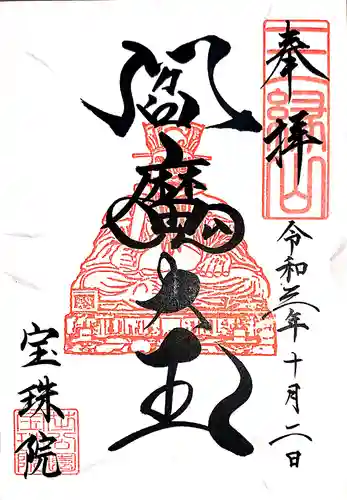 奉拝
令和三年十月二日
閻魔大王
宝珠院
三縁山